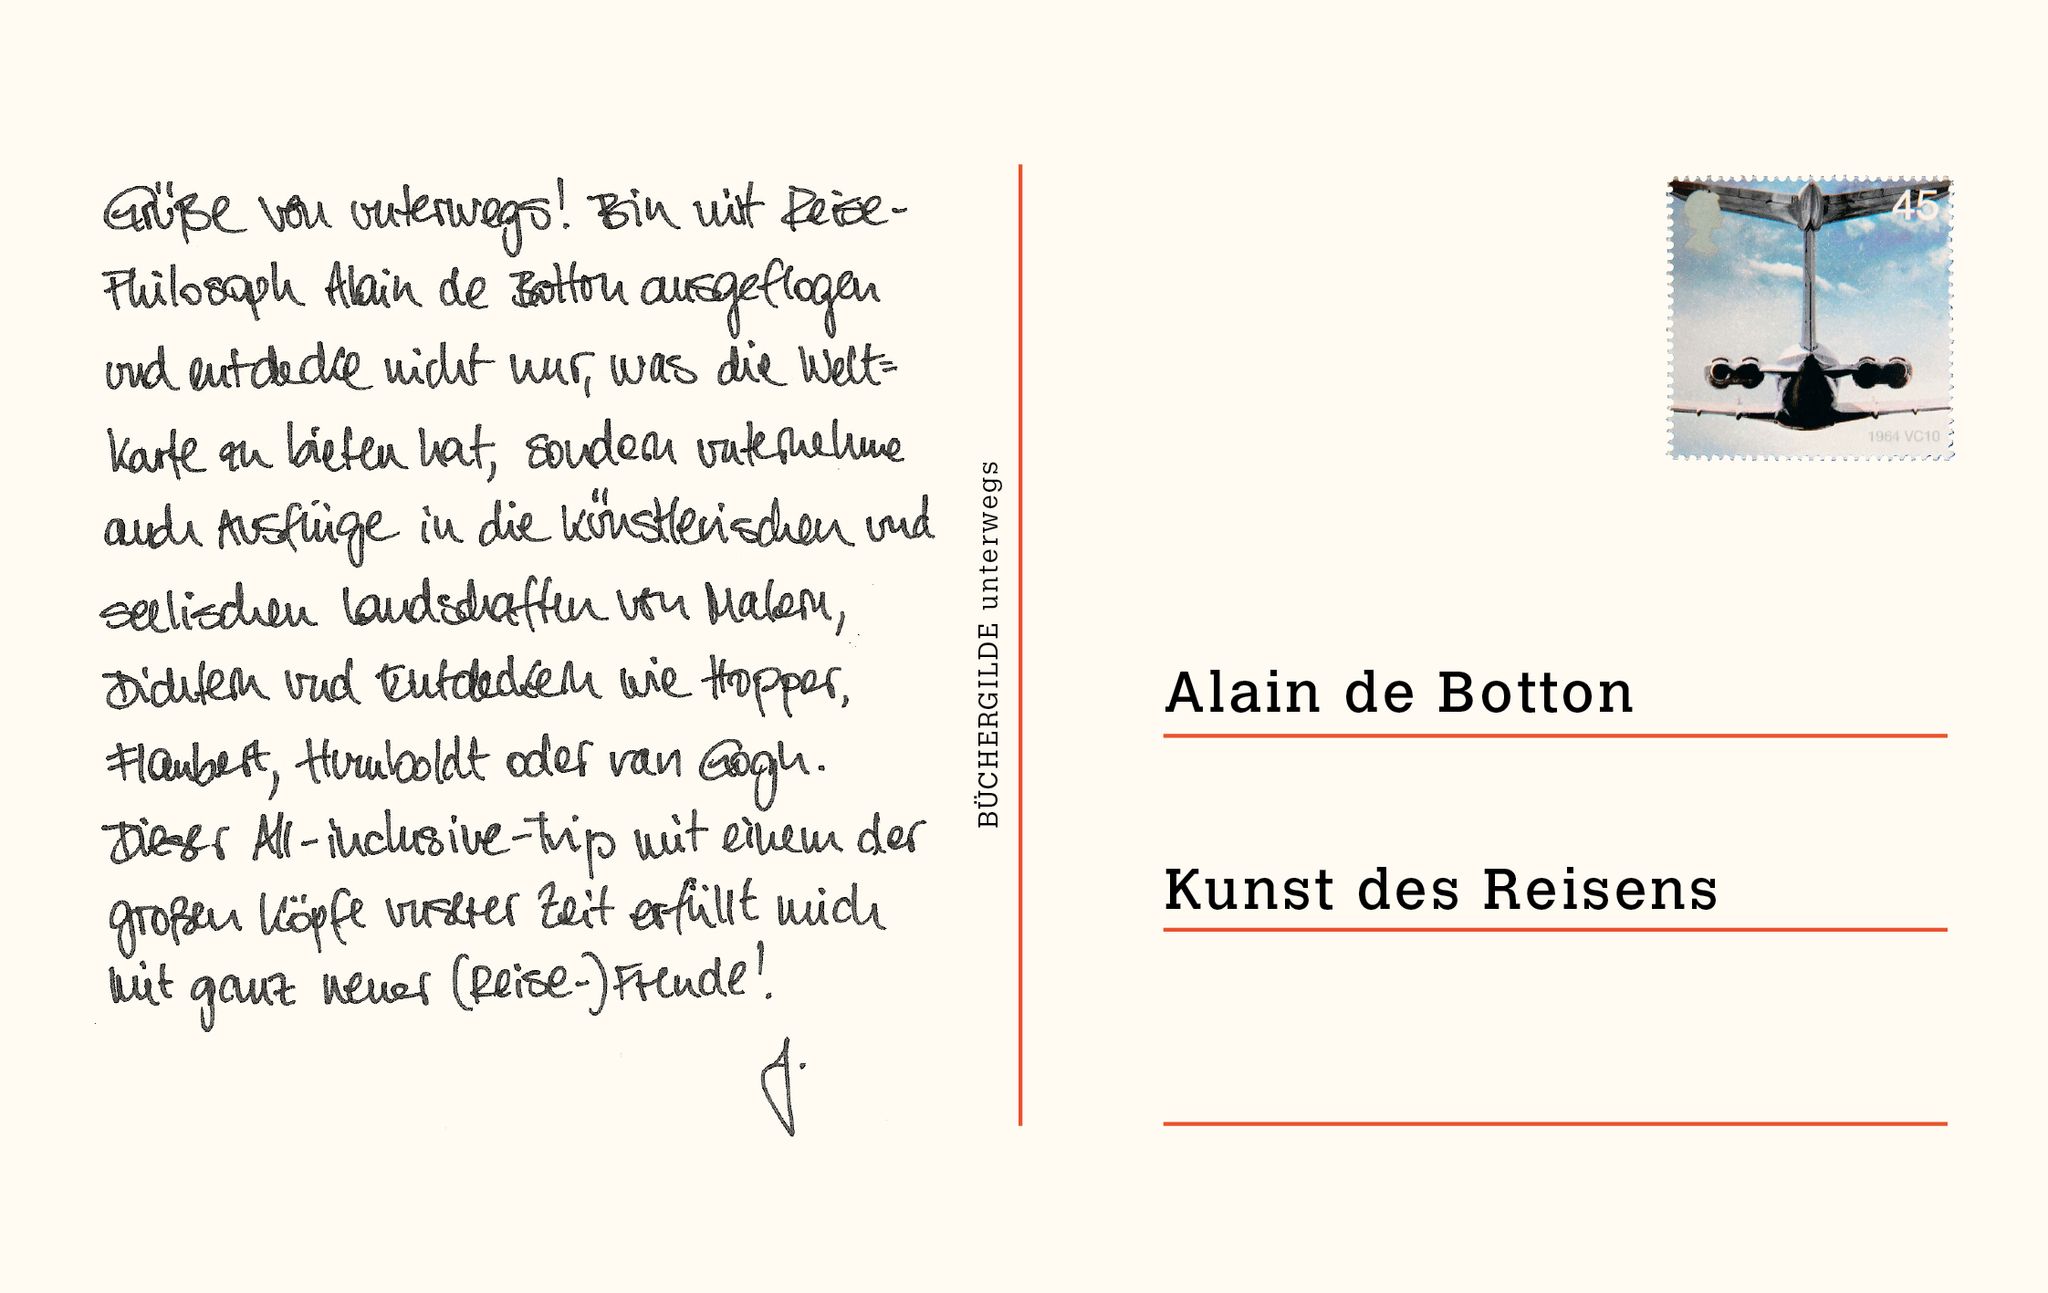 Grüße von unterwegs! Bin mit Reise-
Philosoph Alain de Botton ausgeflogen
und entdecke nicht nur, was die Welt=
karte zu bieten hat, sondern unternehme
auch Ausflüge in die künstlerischen und
seelischen Landschaften von Malern,
Dichtern und Entdeckern wie Hopper,
Flaubert, Humboldt oder van Gogh.
Dieser All-inclusive-Trip mit einem der
großen Köpfe unserer Zeit erfüllt mich
mit ganz neuer (Reise-)Freude!
J.
BÜCHERGILDE unterwegs
45
1964 VC10
Alain de Botton
Kunst des Reisens